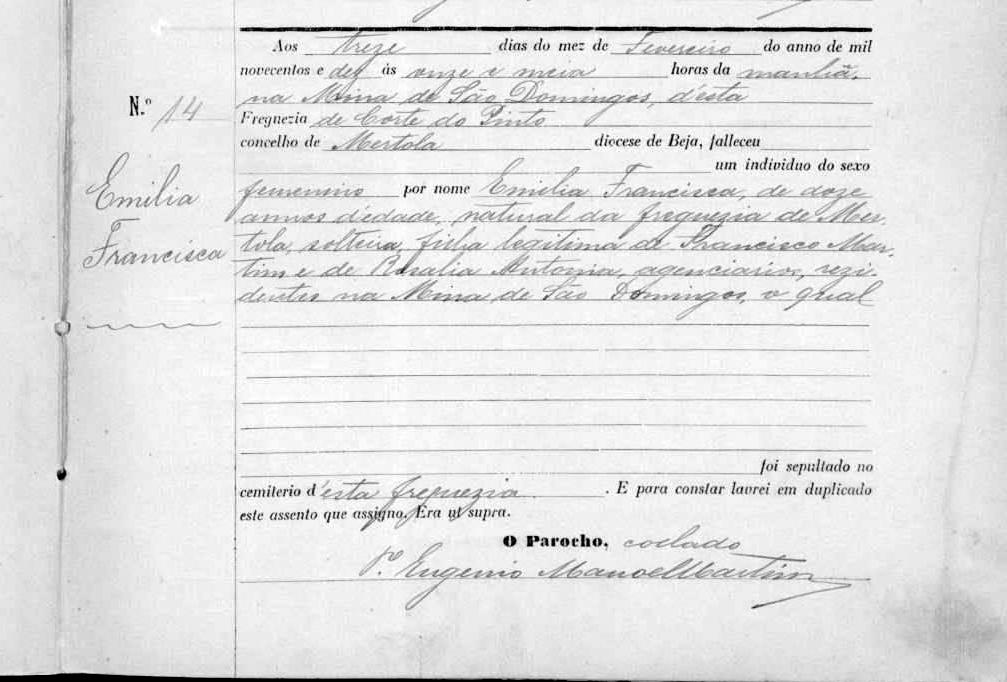 Aos treze dias do mez de Fevereiro do anno de mil
novecentos e dez ás onze e meia horas da manhã,
na Mina de São Domingos, d'esta
N.º 14
Freguezia de Corte do Pinto
concelho de Mertola diocese de Beja, falleceu
um individuo do sexo
Emilia
Francisca
femenino por nome Emilia Francisca, de doze
annos d'edade, natural da freguezia de Mer-
tola, solteira, filha legitima de Francisco Mar-
tins e de Rosalia Antonia, agenciarios, rezi-
dentes na Mina de São Domingos, o qual
foi sepultado no
cemiterio d'esta freguezia. E para constar lavrei em duplicado
este assento que assigno. Era ut supra.
O Parocho, collado
P.e Eugenio Manoel Martins